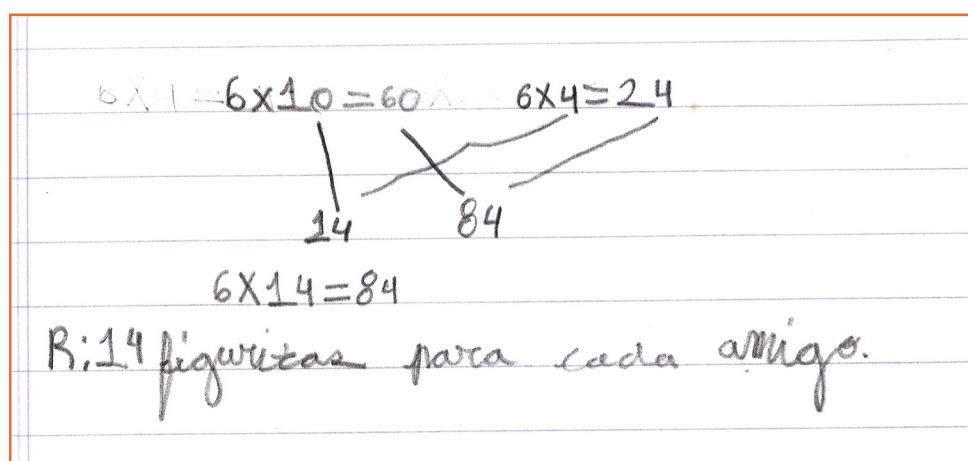 6x10=60 6x4=24
14 84
6X14=84
R:14 figuritas para cada amigo.